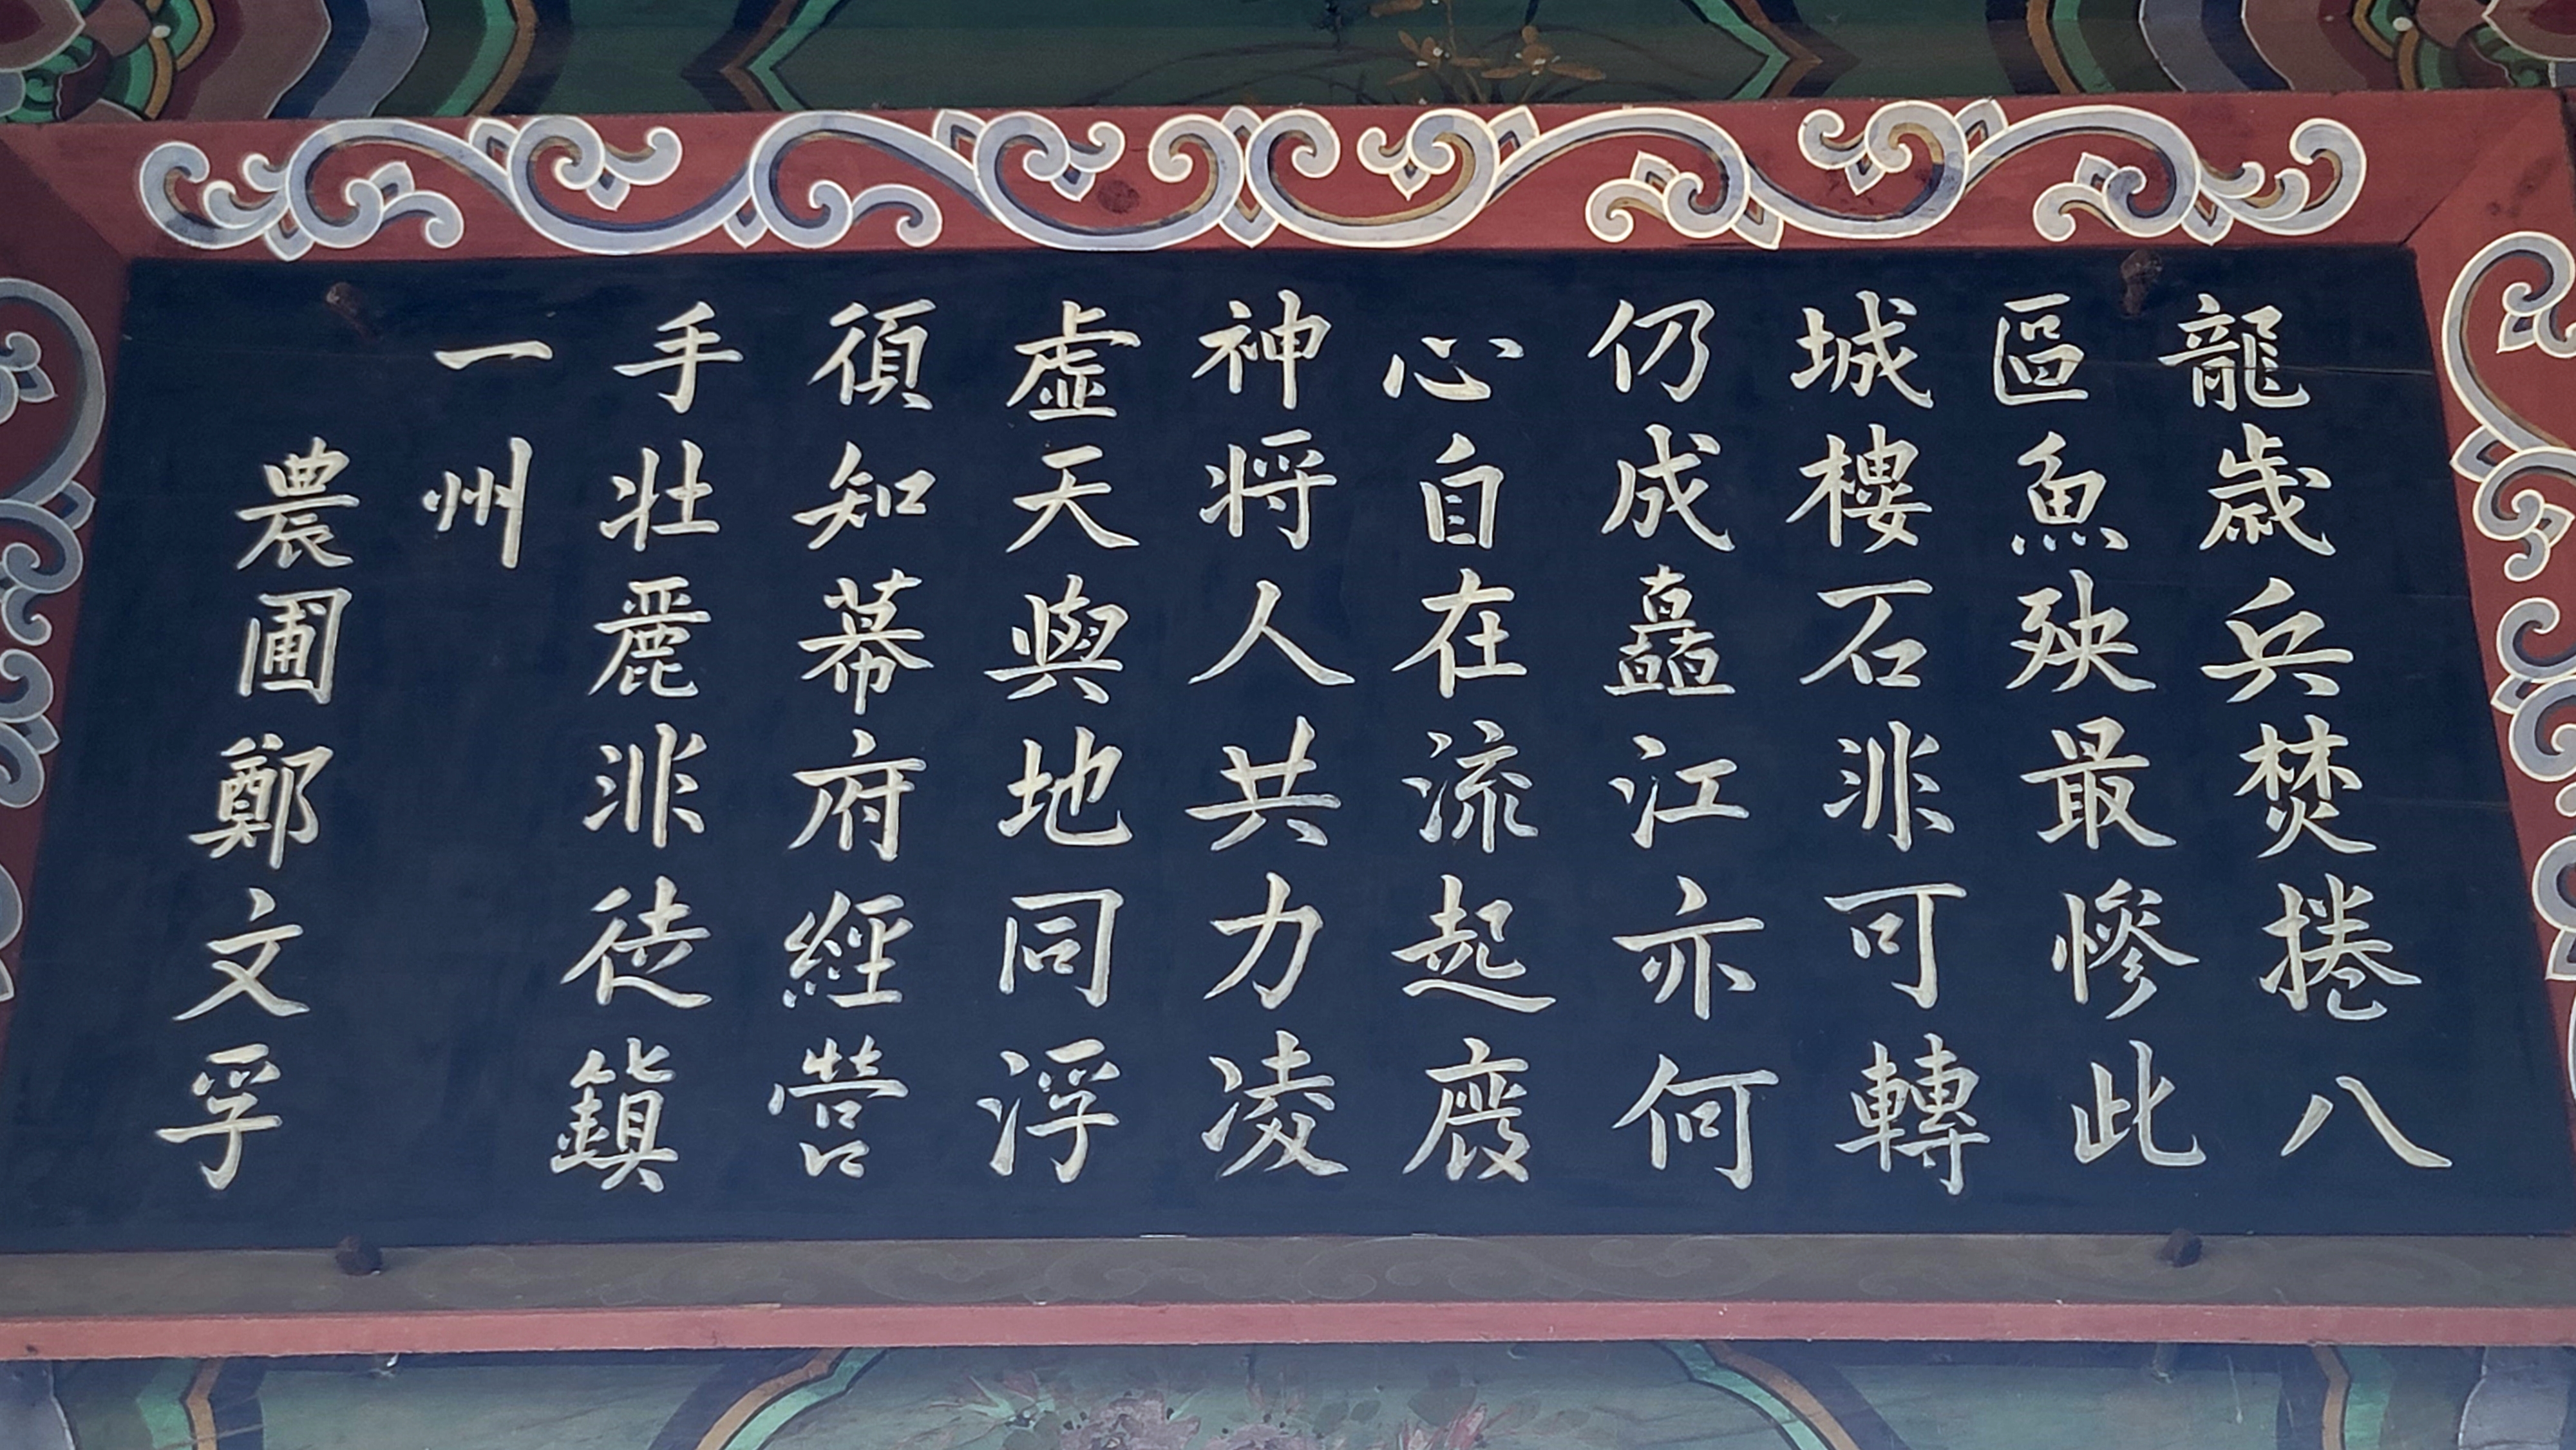 龍歲兵焚捲八
區魚殃最慘此
城樓石非可轉
仍成矗江亦何
心自在流起廢
神将人共力凌
虛天與地同浮
須知幕府經營
手壯麗非徒鎭
一州
農圃鄭文孚